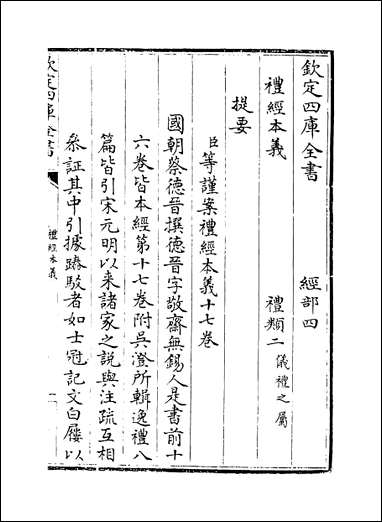 欽定四庫全書　　　經部四
禮經本義　　　　禮類二儀禮之屬
提要
臣等謹案禮經本義十七卷
國朝蔡德晉撰德晉字敬齋無錫人是書前十
六卷皆本經第十七卷附吳澄所輯逸禮八
篇皆引宋元明以來諸家之說與注疏互相
叅証其中引據踳駁者如士冠記文白屨以
欽定四庫全書　禮經本義　一